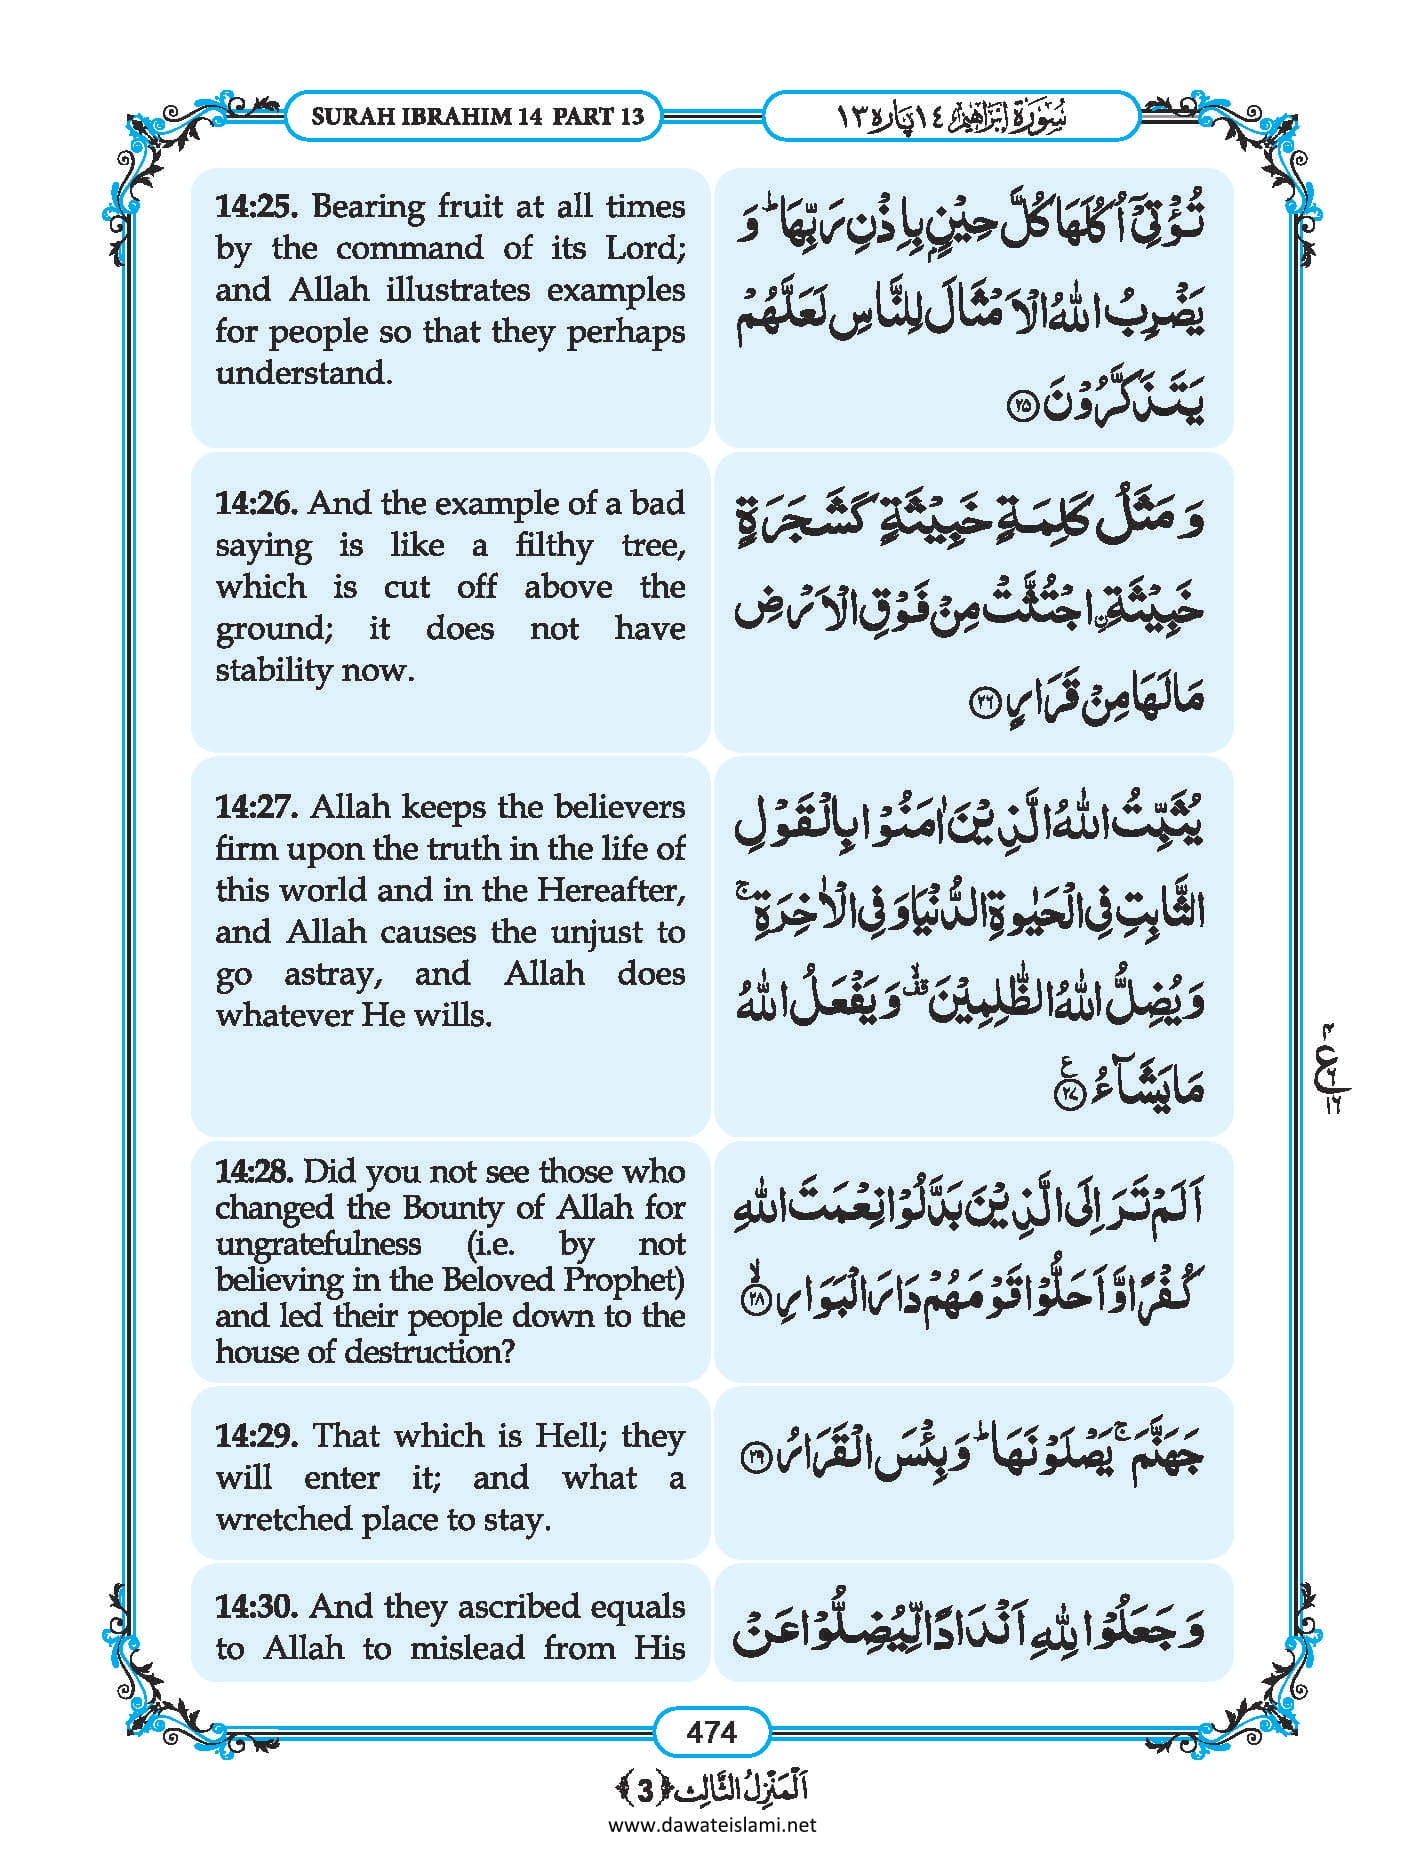 SURAH IBRAHIM 14 PART 13
سُوْرَةُ اِبْرٰاهِيْم ١٤ پَارَہ ١٣
14:25. Bearing fruit at all times
by the command of its Lord;
and Allah illustrates examples
for people so that they perhaps
understand.
تُؤْتِيْۤ اُكُلَهَا كُلَّ حِيْنٍۭ بِاِذْنِ رَبِّهَا ؕ وَ
يَضْرِبُ اللّٰهُ الْاَمْثَالَ لِلنَّاسِ لَعَلَّهُمْ
يَتَذَكَّرُوْنَ ﴿۲۵﴾
14:26. And the example of a bad
saying is like a filthy tree,
which is cut off above the
ground; it does not have
stability now.
وَ مَثَلُ كَلِمَةٍ خَبِيْثَةٍ كَشَجَرَةٍ
خَبِيْثَةِ ۟اجْتُثَّتْ مِنْ فَوْقِ الْاَرْضِ
مَا لَهَا مِنْ قَرَارٍ ﴿۲۶﴾
14:27. Allah keeps the believers
firm upon the truth in the life of
this world and in the Hereafter,
and Allah causes the unjust to
go astray, and Allah does
whatever He wills.
يُثَبِّتُ اللّٰهُ الَّذِيْنَ اٰمَنُوْا بِالْقَوْلِ
الثَّابِتِ فِي الْحَيٰوةِ الدُّنْيَا وَ فِي الْاٰخِرَةِ ۚ
وَ يُضِلُّ اللّٰهُ الظّٰلِمِيْنَ ۙ۟ وَ يَفْعَلُ اللّٰهُ
مَا يَشَآءُ ﴿۲۷﴾ ع
۴
ع
۶
۱۶
14:28. Did you not see those who
changed the Bounty of Allah for
ungratefulness (i.e. by not
believing in the Beloved Prophet)
and led their people down to the
house of destruction?
اَلَمْ تَرَ اِلَى الَّذِيْنَ بَدَّلُوْا نِعْمَتَ اللّٰهِ
كُفْرًا وَّ اَحَلُّوْا قَوْمَهُمْ دَارَ الْبَوَارِ ﴿ۙ۲۸﴾
14:29. That which is Hell; they
will enter it; and what a
wretched place to stay.
جَهَنَّمَ ۚ يَصْلَوْنَهَا ؕ وَ بِئْسَ الْقَرَارُ ﴿۲۹﴾
14:30. And they ascribed equals
to Allah to mislead from His
وَ جَعَلُوْا لِلّٰهِ اَنْدَادًا لِّيُضِلُّوْا عَنْ
474
اَلْمَنْزِلُ الثَّالِث ﴿3﴾
www.dawateislami.net